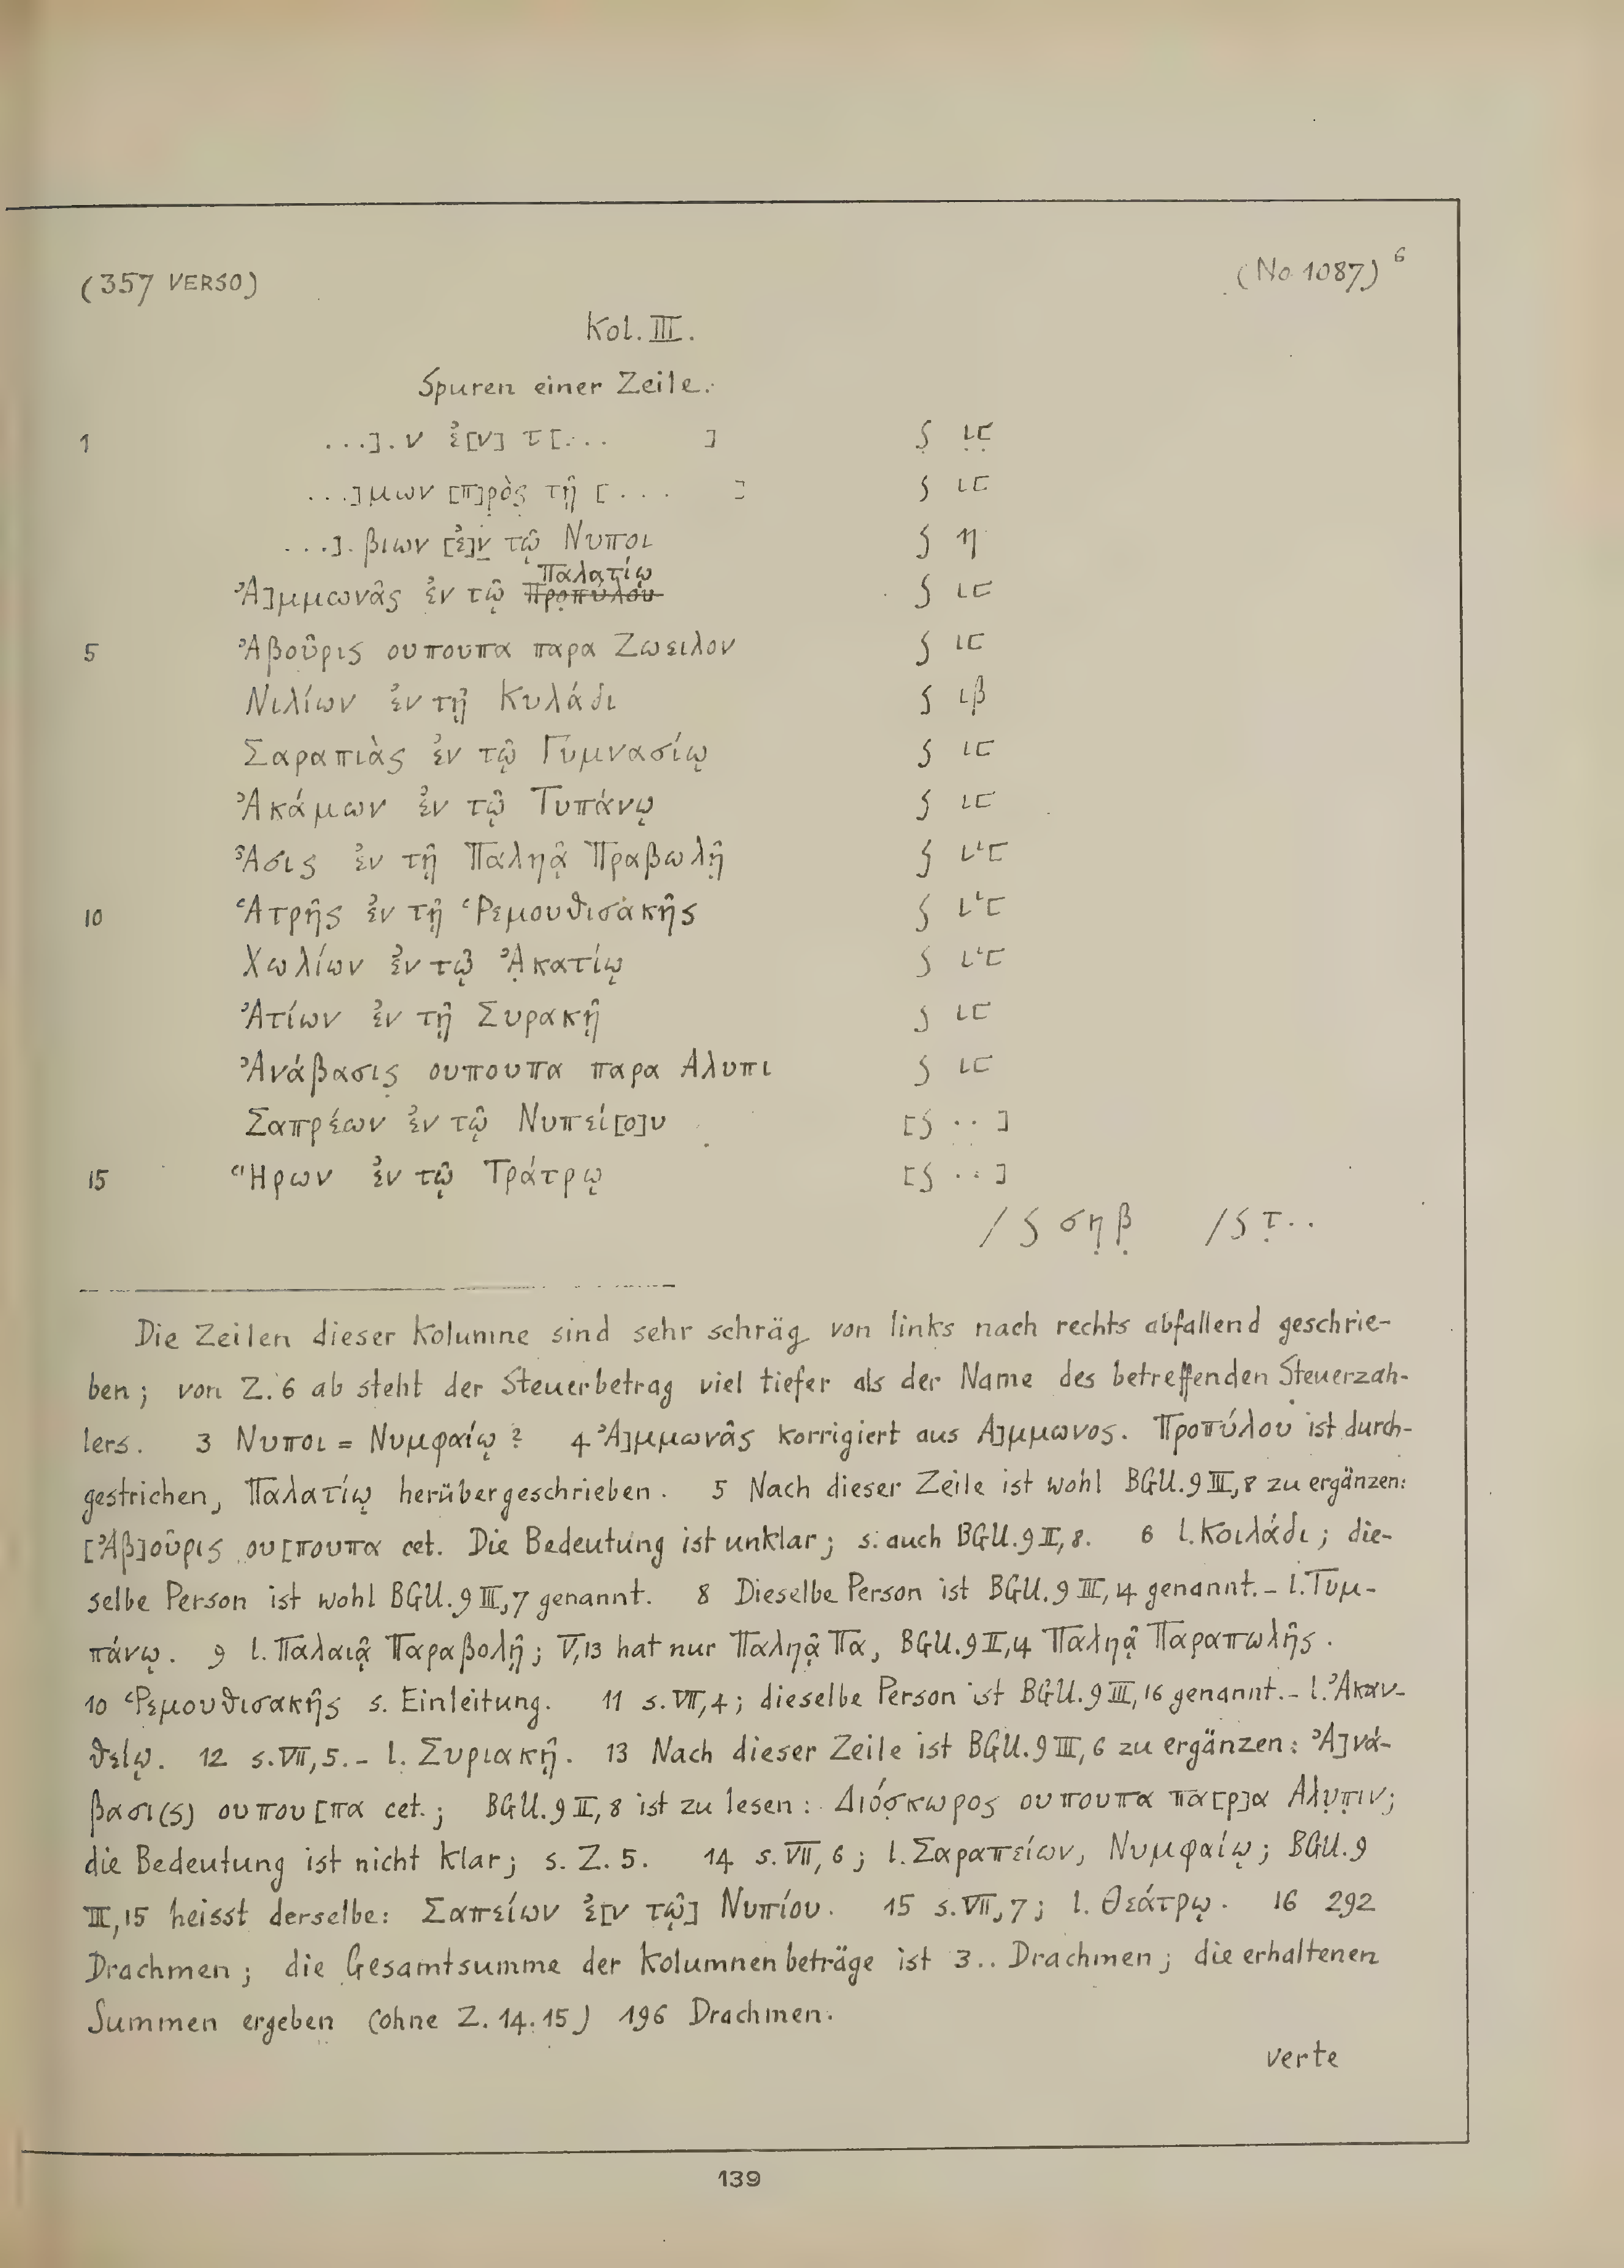 (357 VERSO) (No 1087) 6
Kol. III.
Spuren einer Zeile.
1 ...]. ν ἐ[ν] τ[... ] ʃ ι̣ϛ̣
...]μων [π]ρὸς τῇ [... ] ʃ ιϛ
...]. βιων [ἐ]ν τῷ Νυποι ʃ η
Παλατίῳ
Ἀ]μμωνᾶς ἐν τῷ Προπύλου ʃ ιϛ
5 Ἀβοῦρις ουπουπα παρα Ζωειλον ʃ ιϛ
Νιλίων ἐν τῇ Κυλάδι ʃ ιβ
Σαραπιὰς ἐν τῷ Γυμνασίῳ ʃ ιϛ
Ἀκάμων ἐν τῷ Τυπάνῳ ʃ ιϛ
Ἆσις ἐν τῇ Παληᾷ Πραβωλῇ ʃ ιϛ
10 Ἁτρῆς ἐν τῇ Ῥεμουθισακῆς ʃ ιϛ
Χωλίων ἐν τῷ Ἀ̣κατίῳ ʃ ιϛ
Ἀτίων ἐν τῇ Συρακῇ ʃ ιϛ
Ἀνάβασις ουπουπα παρα Αλυπι ʃ ιϛ
Σαπρέων ἐν τῷ Νυπεί[ο]υ [ʃ ..]
15 Ἥρων ἐν τῷ Τράτρῳ [ʃ ..]
/ ʃ ση̣β̣ / ʃ τ̣..
Die Zeilen dieser Kolumne sind sehr schräg von links nach rechts abfallend geschrie-
ben; von Z. 6 ab steht der Steuerbetrag viel tiefer als der Name des betreffenden Steuerzah-
lers. 3 Νυποι = Νυμφαίῳ? 4 Ἀ]μμωνᾶς korrigiert aus Α]μμωνος. Προπύλου ist durch-
gestrichen, Παλατίῳ herübergeschrieben. 5 Nach dieser Zeile ist wohl BGU. 9 III, 8 zu ergänzen:
[Ἀβ]οῦρις ου[πουπα cet. Die Bedeutung ist unklar; s. auch BGU. 9 II, 8. 6 l. Κοιλάδι; die-
selbe Person ist wohl BGU. 9 III, 7 genannt. 8 Dieselbe Person ist BGU. 9 III, 14 genannt. – l. Τυμ-
πάνῳ. 9 l. Παλαιᾷ Παραβολῇ; V, 13 hat nur Παληᾷ Πα, BGU. 9 II, 4 Παληᾷ Παραπωλῆς.
10 Ῥεμουθισακῆς s. Einleitung. 11 s. VII, 4; dieselbe Person ist BGU. 9 III, 16 genannt. – l. Ἀκαν-
θείῳ. 12 s. VII, 5. – l. Συριακῇ. 13 Nach dieser Zeile ist BGU. 9 III, 6 zu ergänzen: Ἀ]νά-
βασι(ς) ουπου[πα cet.; BGU. 9 II, 8 ist zu lesen: Διόσ̣κωρος ουπουπα πα[ρ]α Αλυ̣π̣ιν;
die Bedeutung ist nicht klar; s. Z. 5. 14 s. VII, 6; l. Σαραπείων, Νυμφαίῳ; BGU. 9
III, 15 heisst derselbe: Σαπείων ἐ[ν τῷ] Νυπίου. 15 s. VII, 7; l. Θεάτρῳ. 16 292
Drachmen; die Gesamtsumme der Kolumnenbeträge ist 3.. Drachmen; die erhaltenen
Summen ergeben (ohne Z. 14. 15) 196 Drachmen.
verte
139